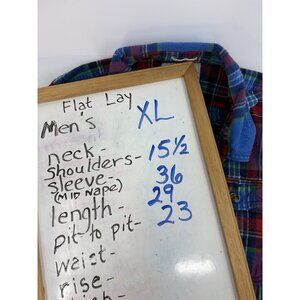 Flat Lay
Men's XL
neck-
shoulders- 15½
sleeve- 36
(MID NAPE) 29
length- 23
pit-to pit-
waist-
rise-